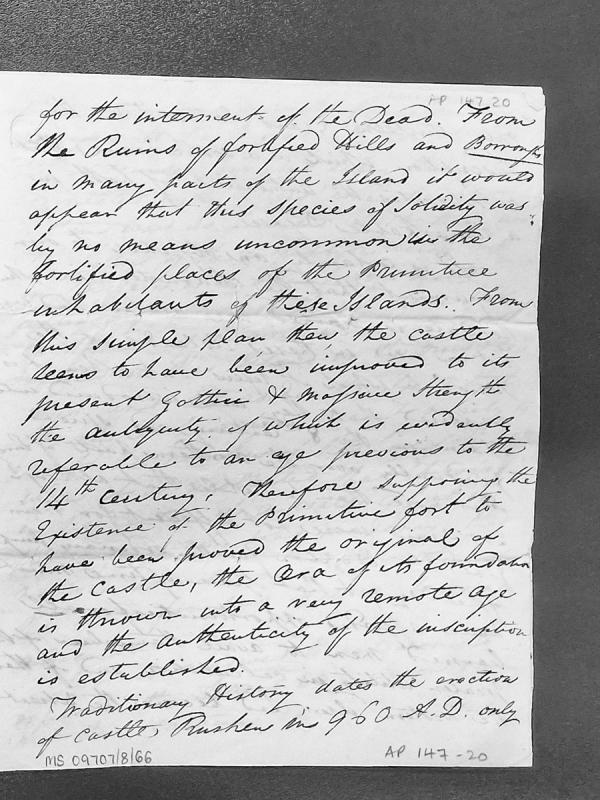 AP 147-20
for the interment of the Dead. From
the Ruins of fortified Hills and Borroughs
in many parts of the Island it would
appear that this species of Solidity was
by no means uncommon in the
fortified places of the Primitive
inhabitants of these Islands. From
this simple plan then the castle
seems to have been improved to its
present Gothic & massive strength
the antiquity of which is evidently
referable to an age previous to the
14th century. Therefore supposing the
Existence of the Primitive fort to
have been proved the original of
the Castle, the Œra of its foundation
is thrown into a very remote age
and the authenticity of the inscription
is established.
Traditionary History dates the erection
of Castle Rushen in 960 A.D. only
MS 09707/8/66
AP 147-20